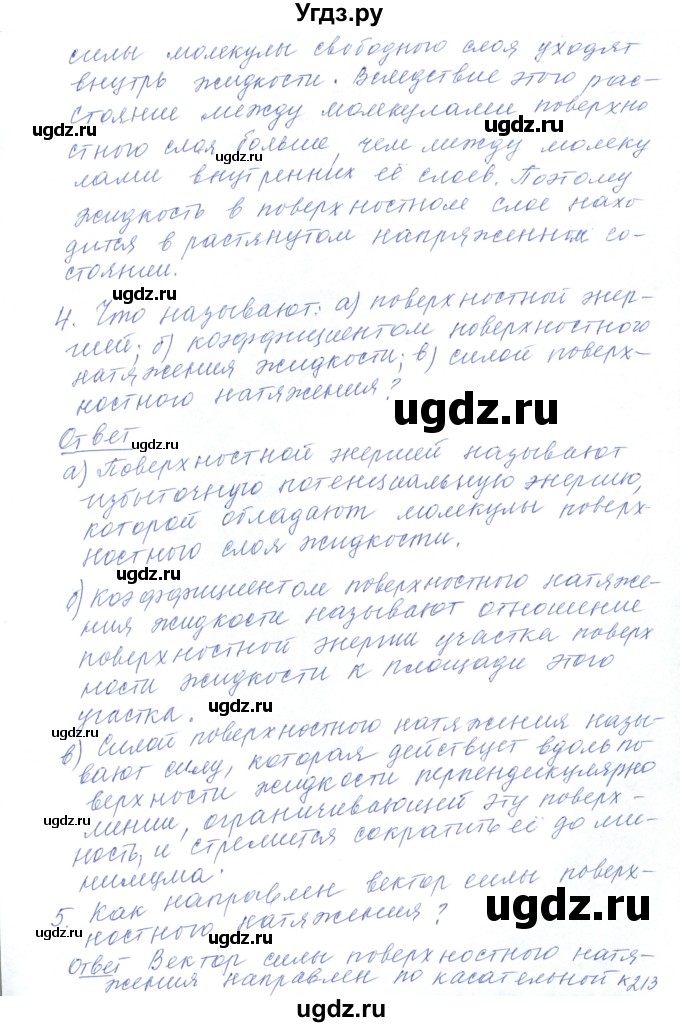 Угдз.ру
силы молекулы свободного слоя уходят
внутрь жидкости. Вследствие этого рас-
стояние между молекулами поверхно
ugdz.ru
ugdz.ru
стного слоя больше, чем между молеку
ugdz.ru
лами внутренних её слоев. Поэтому
жидкость в поверхностном слое нахо-
дится в растянутом напряженном со-
стоянии.
4. Что называют: а) поверхностной энер-
гией; б) коэффициентом поверхностного
натяжения жидкости; в) силой поверх-
ностного натяжения?
ugdz.ru
Ответ
ugdz.ru
а) Поверхностной энергией называют
избыточную потенциальную энергию,
которой обладают молекулы поверх-
ностного слоя жидкости.
ugdz.ru
б) Коэффициентом поверхностного натяже-
ния жидкости называют отношение
поверхностной энергии участка поверх
ности жидкости к площади этого
участка.
ugdz.ru
в) Силой поверхностного натяжения назы-
ugdz.ru
вают силу, которая действует вдоль по
верхности жидкости перпендикулярно
линии, ограничивающей эту поверх-
ugdz.ru
ность, и стремится сократить её до ми-
нимума.
5. Как направлен вектор силы поверх-
ностного натяжения?
ugdz.ru
ugdz.ru
Ответ Вектор силы поверхностного натя-
жения направлен по касательной к
213
ugdz.ru
ugdz.ru